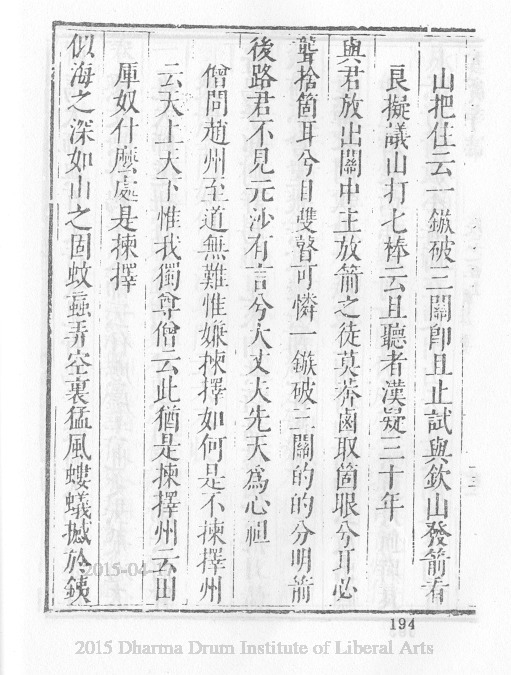 山把住云一鏃破三關卽且止試與欽山發箭看
良擬議山打七棒云且聽者漢疑三十年
與君放出關中主放箭之徒莫莽鹵取箇眼兮耳必
聾捨箇耳兮目雙瞽可憐一鏃破三關的的分明箭
後路君不見元沙有言兮大丈夫先天爲心祖
僧問趙州至道無難惟嫌揀擇如何是不揀擇州
云天上天下惟我獨尊僧云此猶是揀擇州云田
厙奴什麼處是揀擇
似海之深如山之固蚊蝱弄空裏猛風螻蟻撼於鐵
2015-04
194
2015 Dharma Drum Institute of Liberal Arts